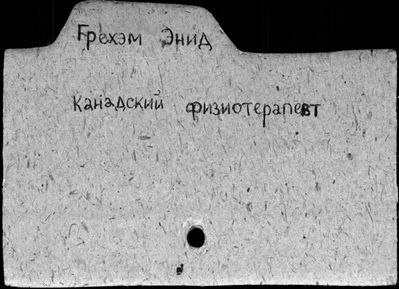 Грехэм Энид
Канадский физиотерапевт